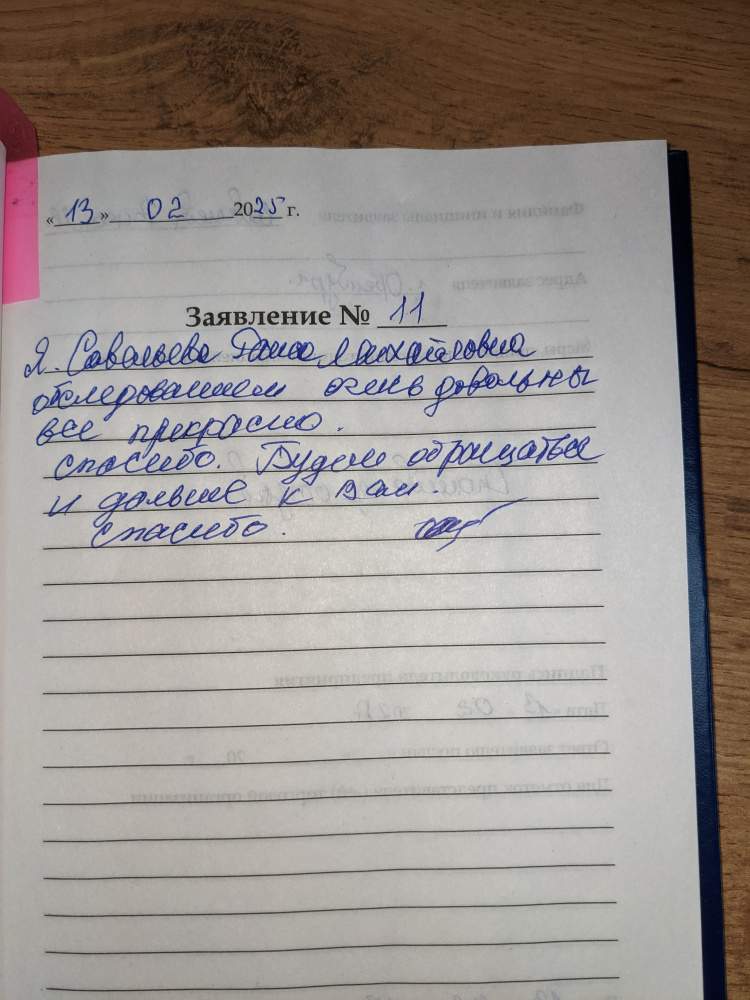 «13» 02 2025 г.
Заявление № 11
Я. Савельева Михайловна
обследованием очень довольны
все прекрасно.
спасибо. Будем обращаться
и дальше к Вам.
спасибо.